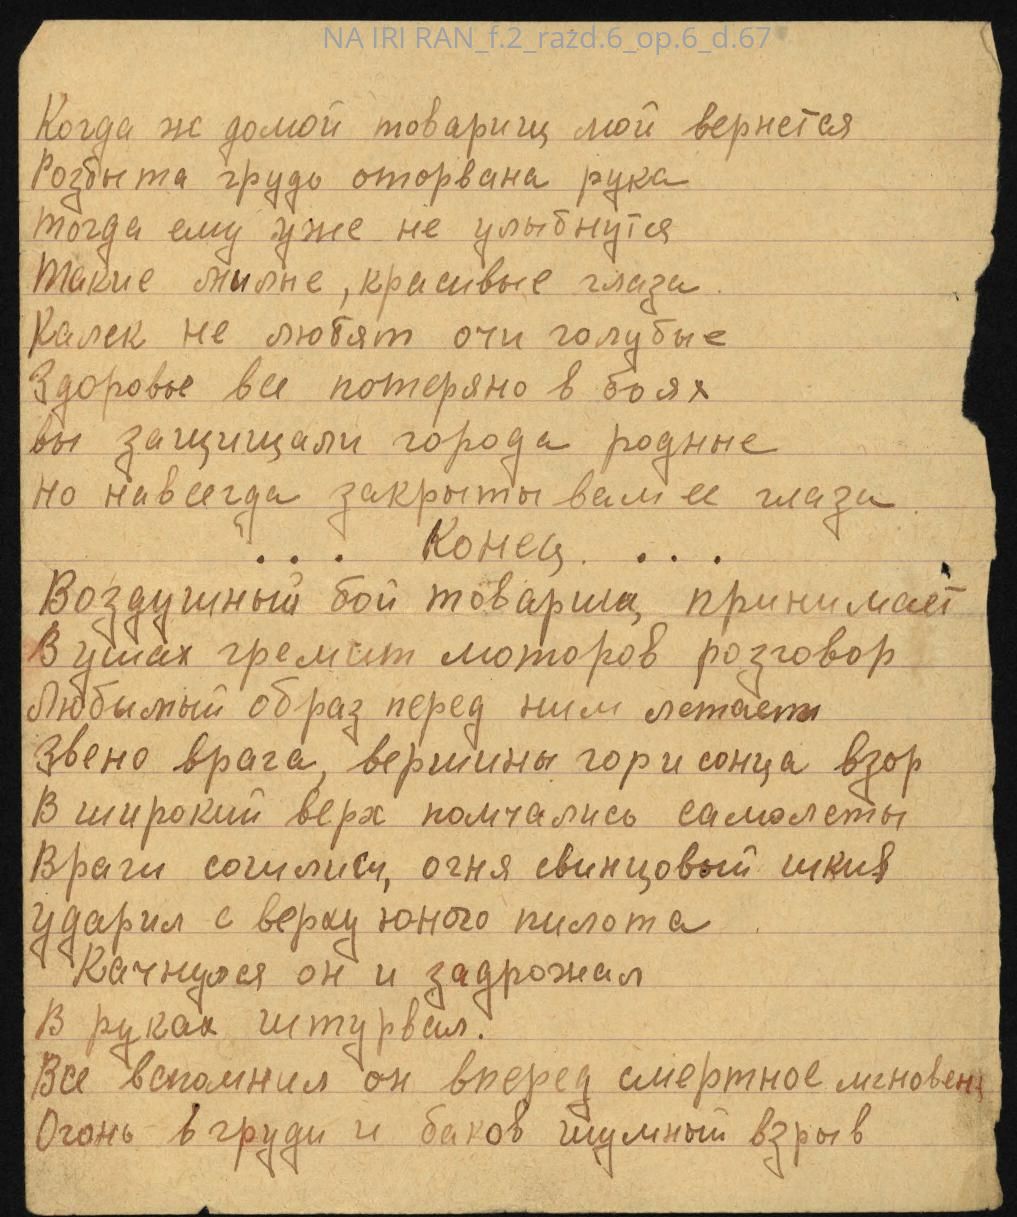 NA IRI RAN_f.2_razd.6_op.6_d.67
Когда ж домой товарищ мой вернется
Розбыта грудь оторвана рука
тогда ему уже не улыбнутся
Такие милые, красивые глаза.
Калек не любят очи голубые
Здоровье все потеряно в боях
вы защищали города родные
но навсегда закрыты вам ее глаза.
. . . Конец. . . .
Воздушный бой товарищ принимает
В ушах гремит моторов розговор
Любымый образ перед ним летает
Звено врага, вершины горисонца взор
В широкий верх помчались самолеты
Враги сошлись, огня свинцовый шкив
ударил с верху юного пилота
Качнулся он и задрожал
В руках штурвал.
Все вспомнил он вперед смертное мгновен
Огонь в груди и баков шумный взрыв